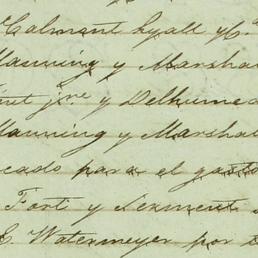 Calmont Lyall y Ca
Manning y Marshal
jne y Delhumea
Manning y Marshal
cado para el gasto
Fort y Serment
E. Watermeyer por